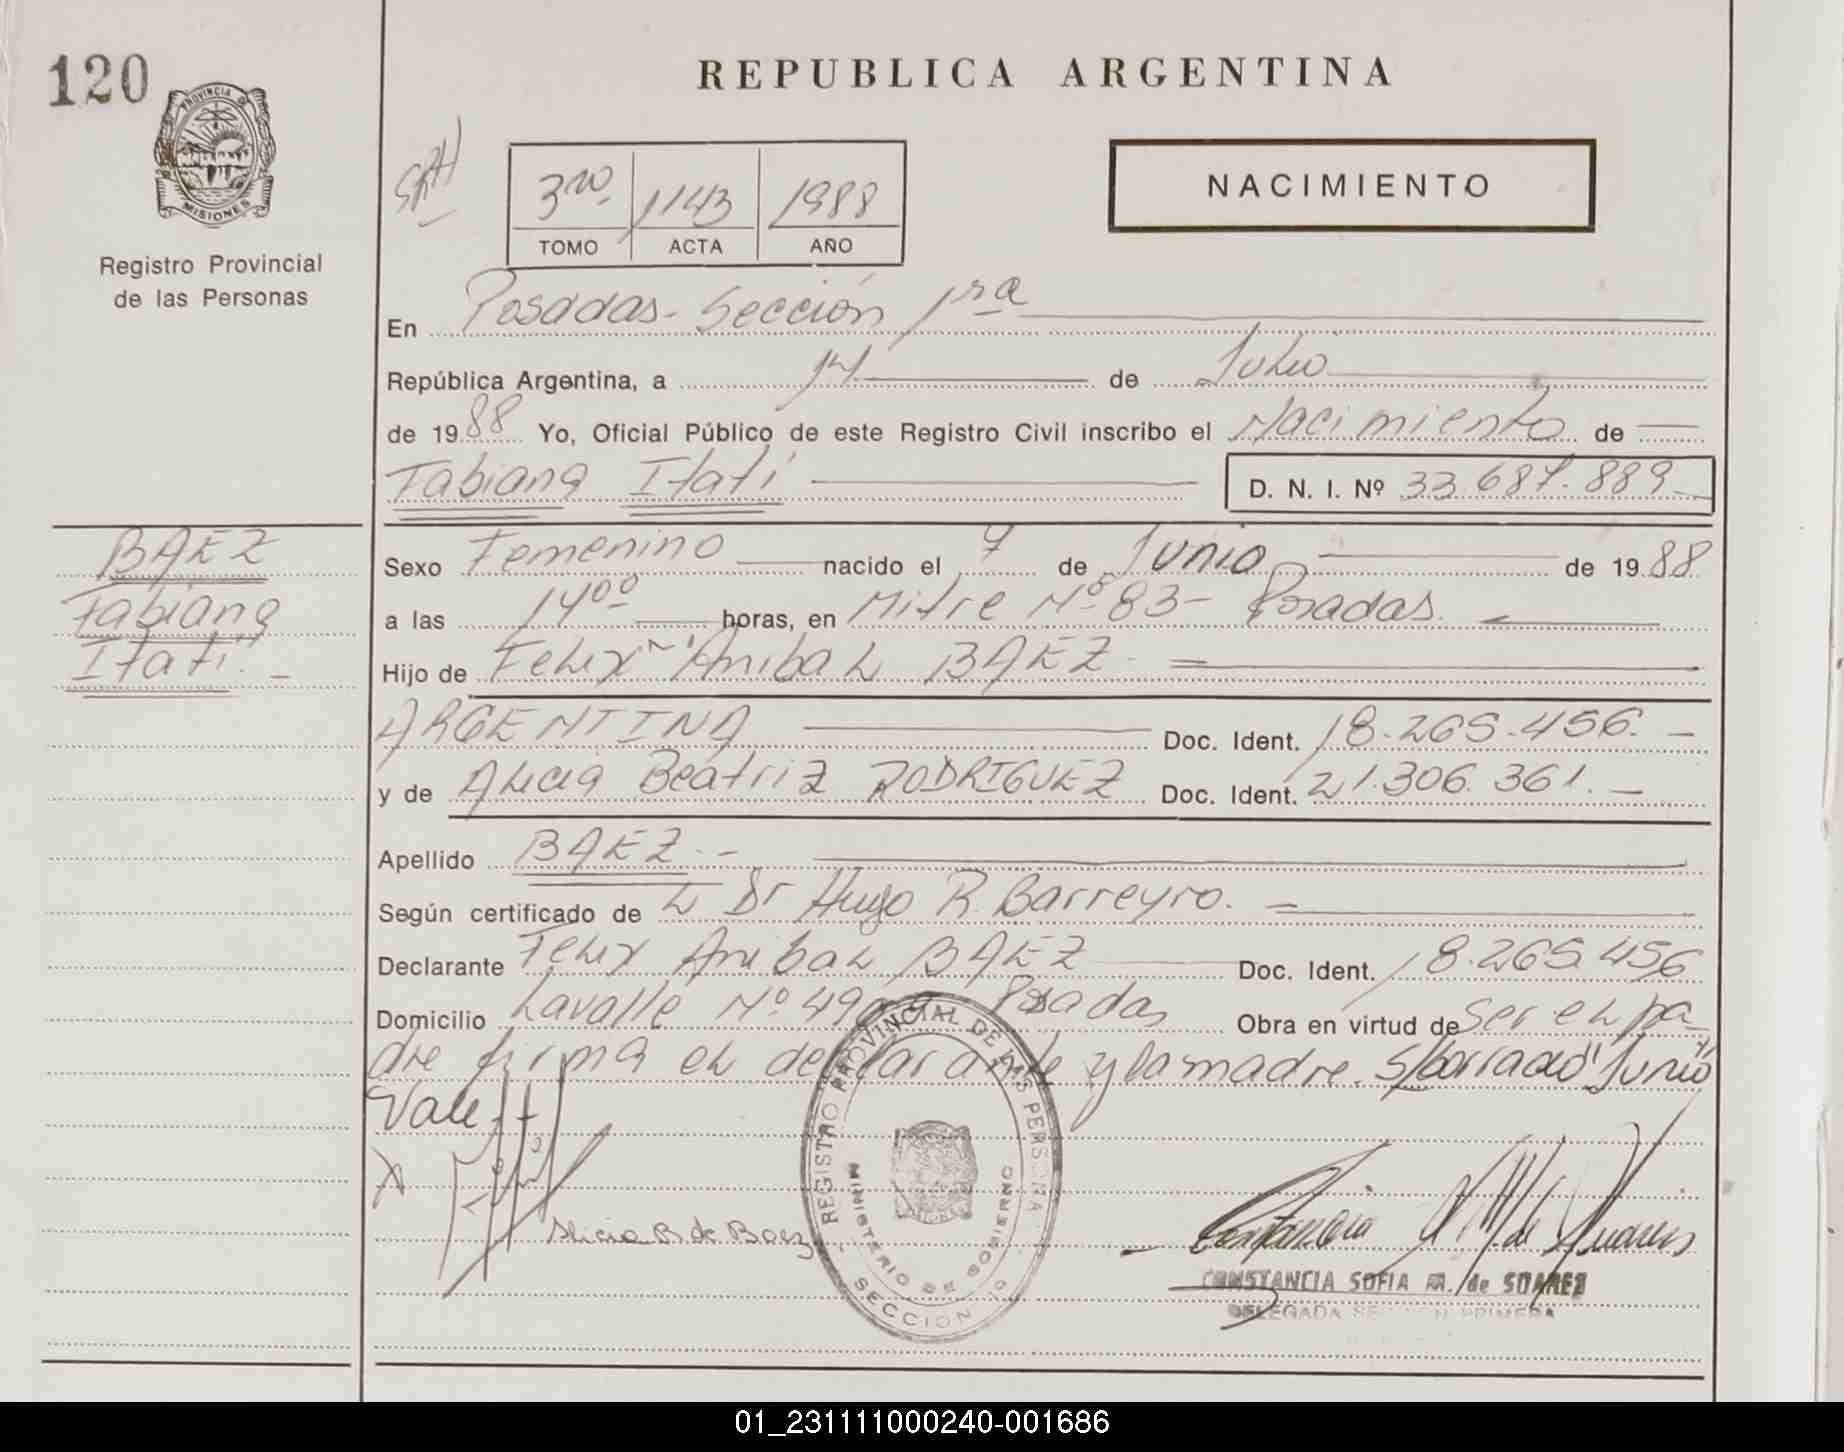 120
REPUBLICA ARGENTINA
PROVINCIA D
MISIONES
Registro Provincial
de las Personas
3ro. 1143 1988
TOMO ACTA AÑO
NACIMIENTO
En Posadas - Sección 1ra
República Argentina, a 14 de Julio
de 1988 Yo, Oficial Público de este Registro Civil inscribo el Nacimiento de
Fabiana Itatí D. N. I. Nº 33.687.889
BAEZ
Fabiana
Itatí. -
Sexo Femenino nacido el 7 de Junio de 1988
a las 14ºº horas, en Mitre Nº 83 - Posadas.
Hijo de Felix Anibal BAEZ
ARGENTINA Doc. Ident. 18.265.456. -
y de Alicia Beatriz RODRIGUEZ Doc. Ident. 21.306.361. -
Apellido BAEZ. -
Según certificado de L Dr Hugo R. Barreyro.
Declarante Felix Anibal BAEZ Doc. Ident. 18.265.456
Domicilio Lavalle Nº Posadas Obra en virtud de ser el pa-
dre firma el declarante y la madre. S/borrado "Junio"
Vale
X
Alicia R de Baez
REGISTRO PROVINCIAL DE LAS PERSONAS
MINISTERIO DE GOBIERNO
SECCION 1º
CONSTANCIA SOFIA M. de SUAREZ
DELEGADA SECCION PRIMERA
01_231111000240-001686